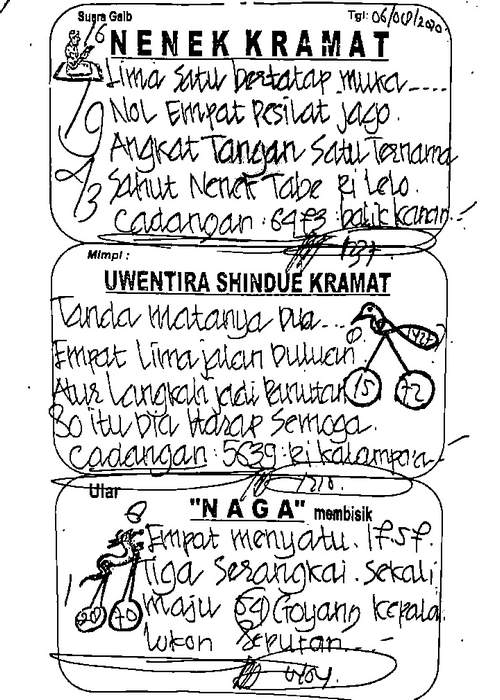 Suara Gaib
Tgl: 06/08/2020
NENEK KRAMAT
Lima satu bertatap muka....
Nol Empat Pesilat jago.
Angkat Tangan Satu Ternama
Sahut Nenek Tabe Ri Lelo.
Cadangan: 6473: balik kanan
1737.
Mimpi:
UWENTIRA SHINDUE KRAMAT
Tanda matanya Dua...
Empat Lima jalan Duluan
Atur Langkah jadi Panutan
80 itu Dia Harap Semoga.
15 72
Cadangan: 5639: Ri kalampa'a
1210.
Ular
"NAGA" membisik
Empat menyatu.
Tiga Serangkai. Sekali
maju 54) Goyang kepala.
20 70
Seputan....